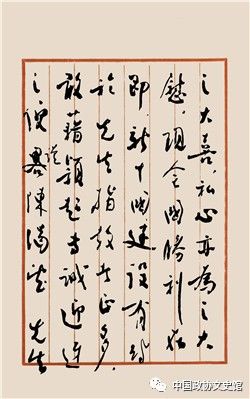 之大喜，私心亦為之大
慰。現全國勝利在
即，新中國建設有待
於先生指教者正多，
敢藉穎超專誠迎迓
之便，謹陳渴望先生
中国政协文史馆